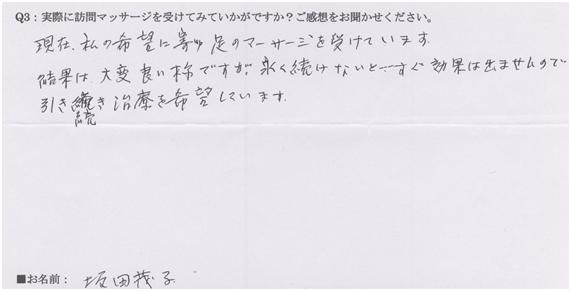 Q3：実際に訪問マッサージを受けてみていかがですか？ご感想をお聞かせください。
現在、私の希望に寄り足のマーサージを受けています。
結果は、大変良い様ですが、永く続けないと…すぐ効果は出ませんので
引き続き治療を希望しています。
続
■お名前： 坂田茂子